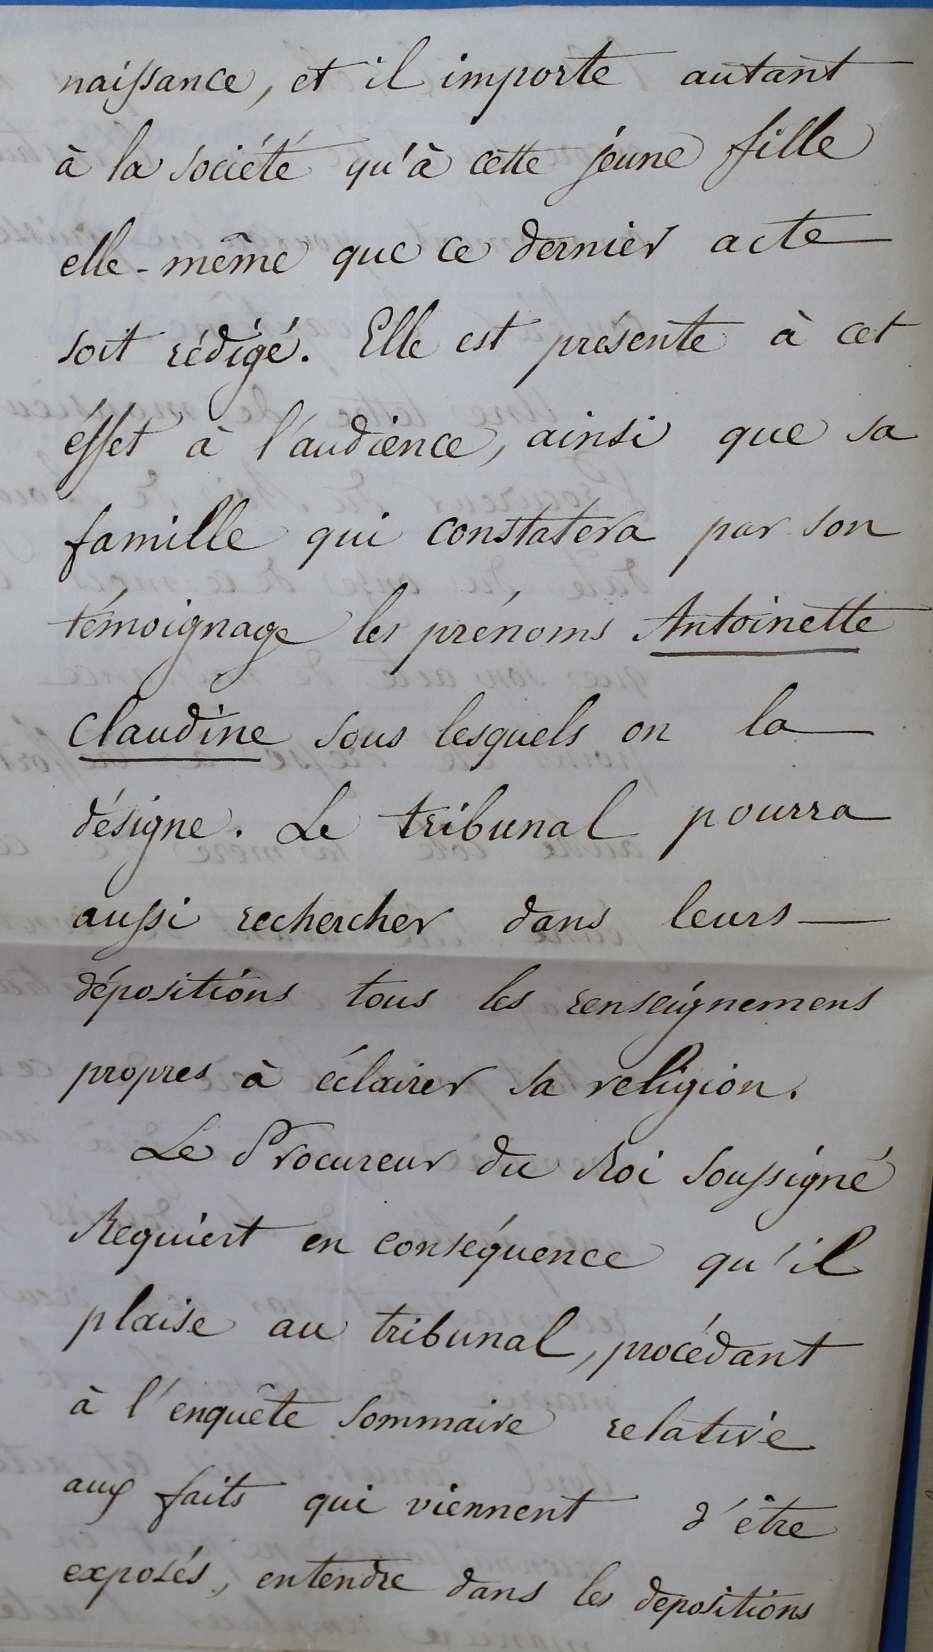 naissance, et il importe autant
à la société qu'à cette jeune fille
elle-même que ce dernier acte
soit rédigé. Elle est présente à cet
éffet à l'audience, ainsi que sa
famille qui constatera par son
témoignage les prénoms Antoinette
Claudine sous lesquels on la
désigne. Le tribunal pourra
aussi rechercher dans leurs
dépositions tous les renseignemens
propres à éclairer sa religion.
Le Procureur du Roi soussigné
Requiert en conséquence qu'il
plaise au tribunal, procédant
à l'enquête sommaire relative
aux faits qui viennent d'être
exposés, entendre dans les depositions